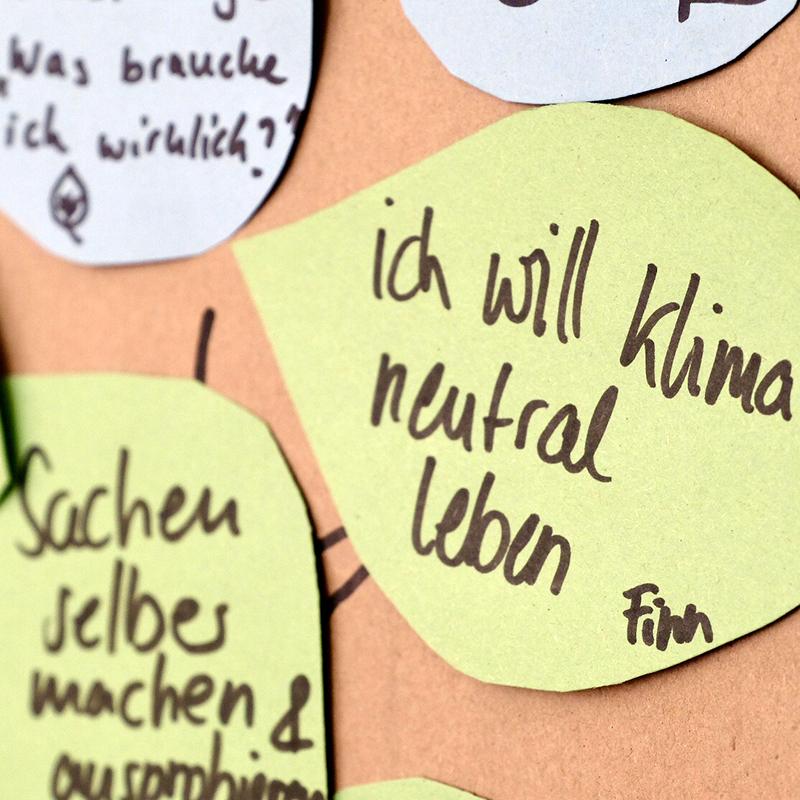 "Was brauche
ich wirklich?"
ich will Klima
neutral
leben
Finn
Sachen
selber
machen &
ausprobieren